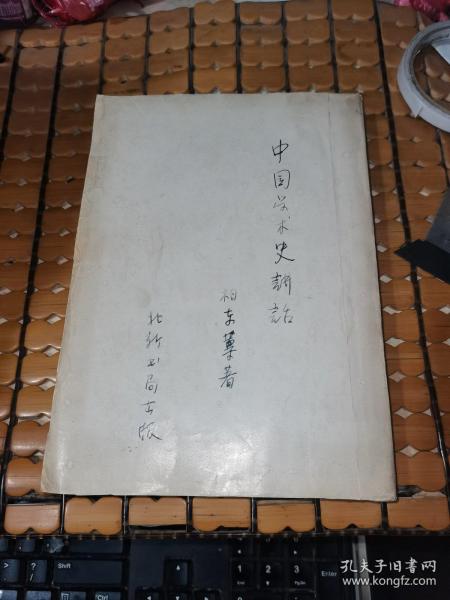 中国学术史讲话
杨东蓴著
北新书局出版
孔夫子旧书网
www.kongfz.com
Enter
Shift
Ctrl